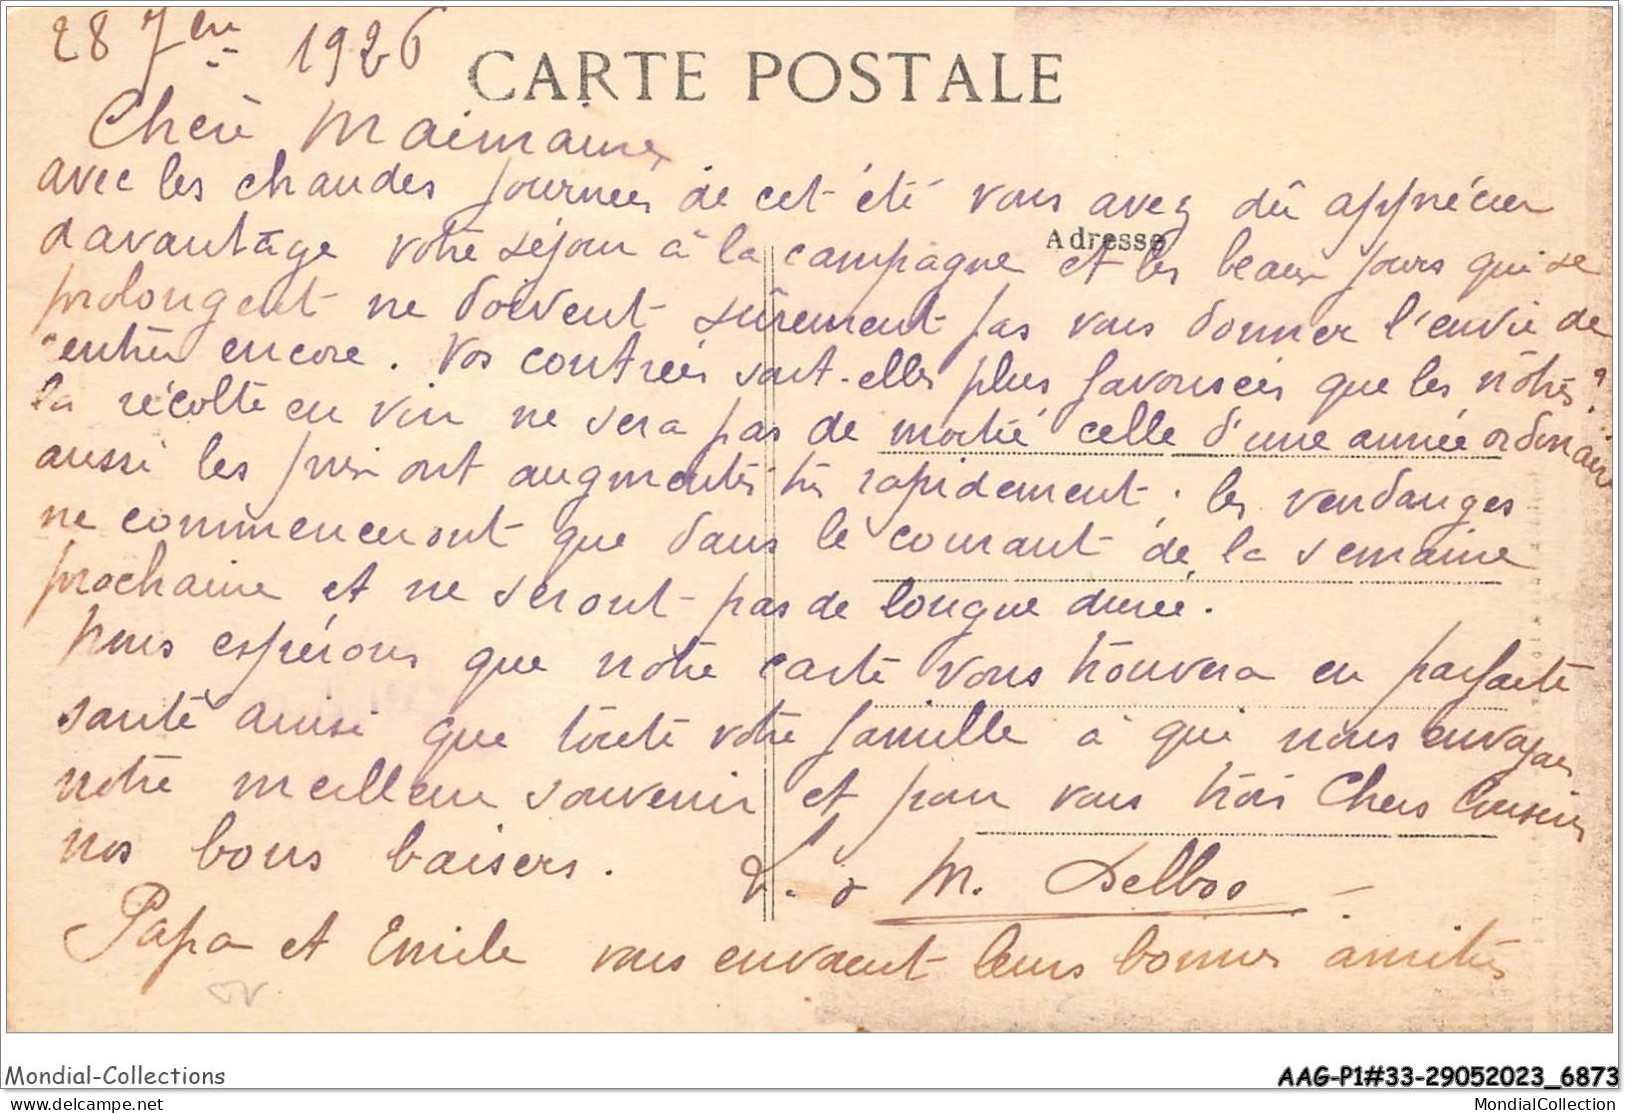 28 7bre 1926
CARTE POSTALE
Chère Maimaine,
avec les chaudes journées de cet été vous avez dû apprécier
Adresse
davantage votre séjour à la campagne et les beaux jours qui se
prolongent ne doivent sûrement pas vous donner l'envie de
rentrer encore. Vos contrées sont-elles plus favorisées que les nôtres ?
la récolte en vin ne sera pas de moitié celle d'une année ordinaire
aussi les prix ont augmentés très rapidement ; les vendanges
ne commenceront que dans le courant de la semaine
prochaine et ne seront pas de longue durée.
Nous espérons que notre carte vous trouvera en parfaite
santé ainsi que toute votre famille à qui nous envoyons
notre meilleur souvenir et pour vous trois Chers Cousins
nos bons baisers.
M. Delbos
Papa et Emile vous envoient leurs bonnes amitiés
Mondial-Collections
AAG-P1#33-29052023_6873
www.delcampe.net
MondialCollection